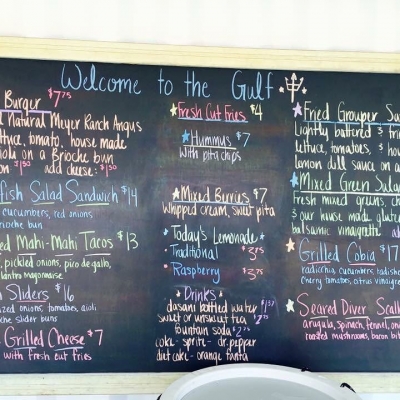 Welcome to the Gulf
Burger $7.75
Natural Meyer Ranch Angus
lettuce, tomato, house made
on a Brioche bun
$1.50 add cheese: $1.50
fish Salad Sandwich $14
cucumbers, red onions,
brioche bun
Mahi-Mahi Tacos $13
pickled onions, pico de gallo,
cilantro mayonnaise
Sliders $16
onions, tomatoes, aioli
slider buns
Grilled Cheese $7
with fresh cut fries
Fresh Cut Fries $4
Hummus $7
with pita chips
Mixed Berries $7
Whipped cream, sweet pita
Today's Lemonade
Traditional
Raspberry
Drinks
dasani bottled water
sweet or unsweet tea
fountain soda
coke - sprite - dr.pepper
diet coke - orange fanta
Fried Grouper
Lightly battered & fried
lettuce, tomatoes, & house
lemon dill sauce on a
Mixed Green Salad
Fresh mixed greens,
& our house made
balsamic vinaigrette
Grilled Cobia $17
radicchia, cucumbers, radishes
cherry tomatoes, citrus vinaigrette
Seared Diver
arugula, spinach, fennel,
roasted mushrooms, bacon